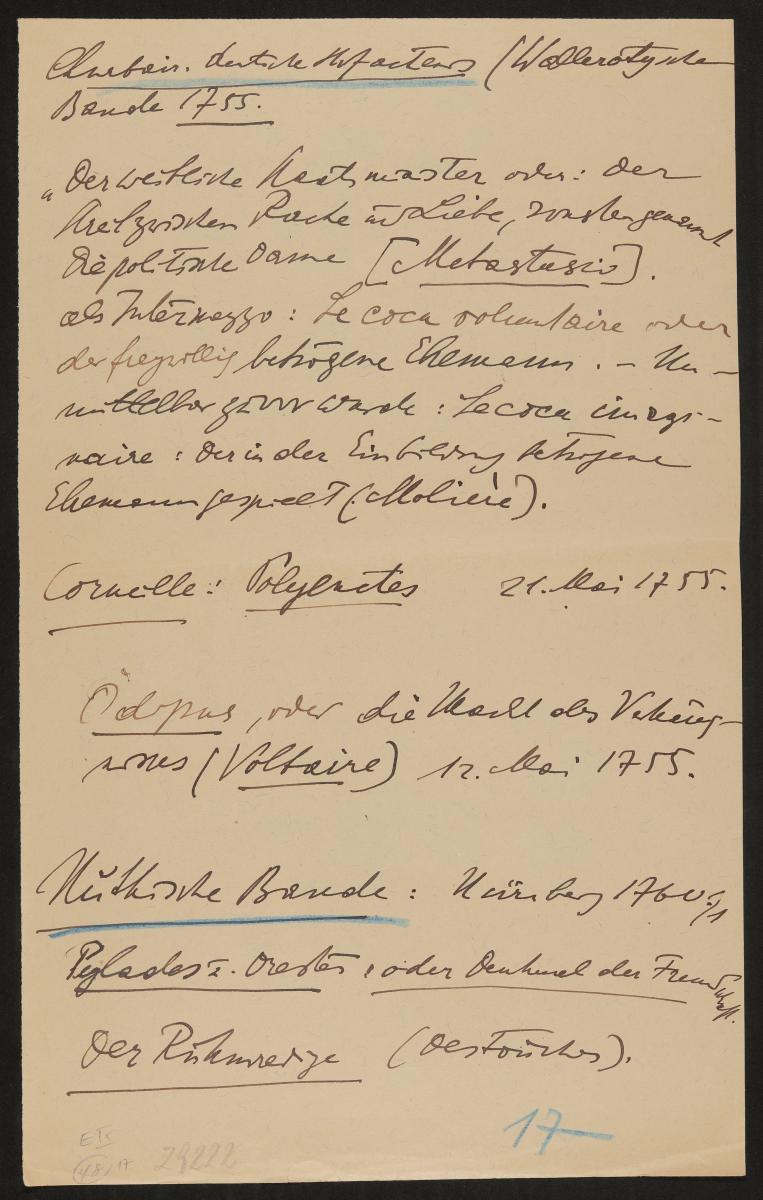 Churbair. deutsche Hofacteurs (Wallerotysche
Bande 1755.
„Der weibliche Hastmeister oder: der
Streit zwischen Rache und Liebe, sonsten genannt
die politische Dame [Metastasio].
als Intermezzo: Le cocu voluntaire oder
der freywillig betrogene Ehemann. – Un-
mittelbar zuvor wurde: Le cocu imagi-
naire: der in der Einbildung betrogene
Ehemann gespielt (Molière).
Corneille: Polyeuctes 21. Mai 1755.
Ödipus, oder die Macht des Verhäng-
nisses (Voltaire) 12. Mai 1755.
Nuthische Bande: Nürnberg 1760/1
Pylades u. Orestes, oder Denkmal der Freundschaft.
Der Ruhmredige (Destouches).
17
48/17 29222